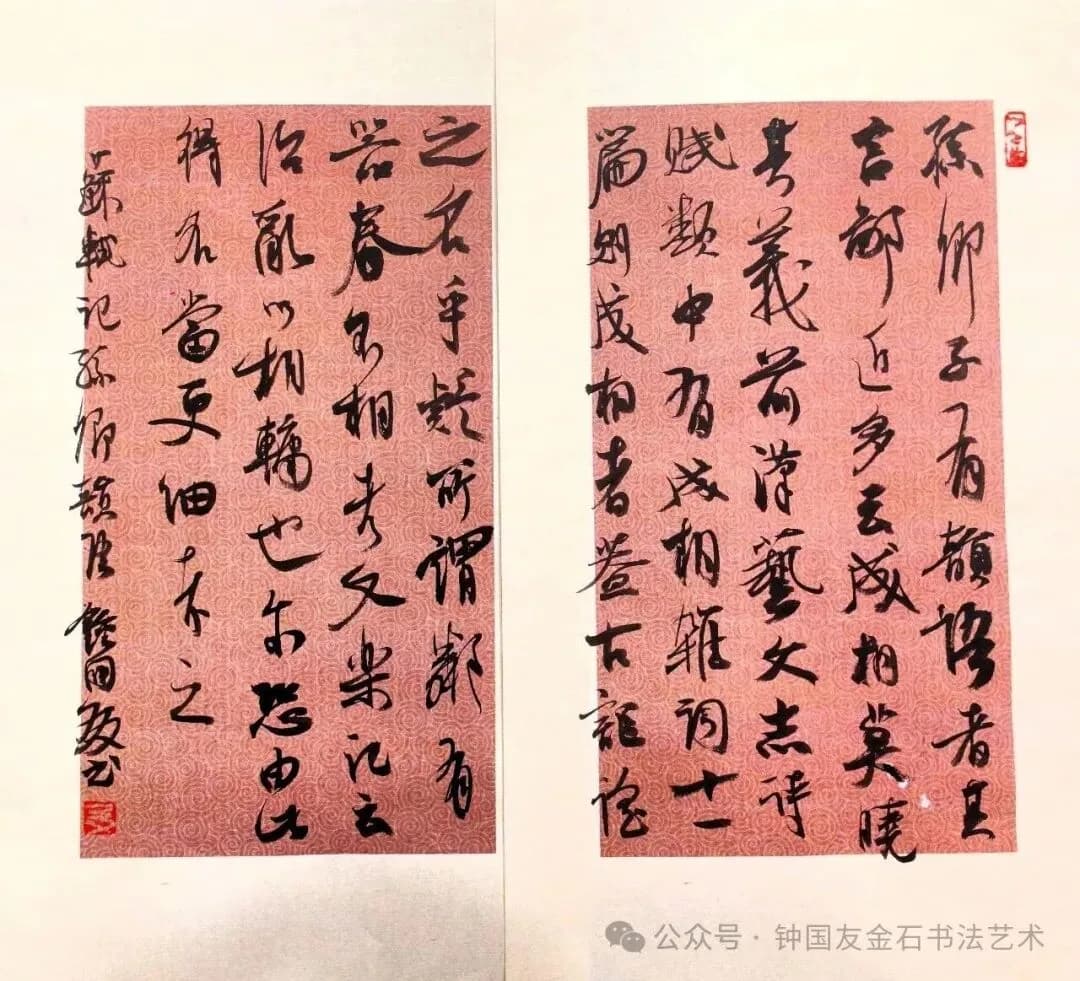 孫卿子有韻語者其
言鄙近多云成相莫曉
其義前漢藝文志詩
賦類中有成相雜詞十一
篇則成相者蓋古謳謠
之名乎疑所謂鄰有
喪舂不相者又樂記云
治亂以相輔也亦恐由此
得名當更細考之
蘇軾記孫卿韻語 鍾國友書
公众号·钟国友金石书法艺术